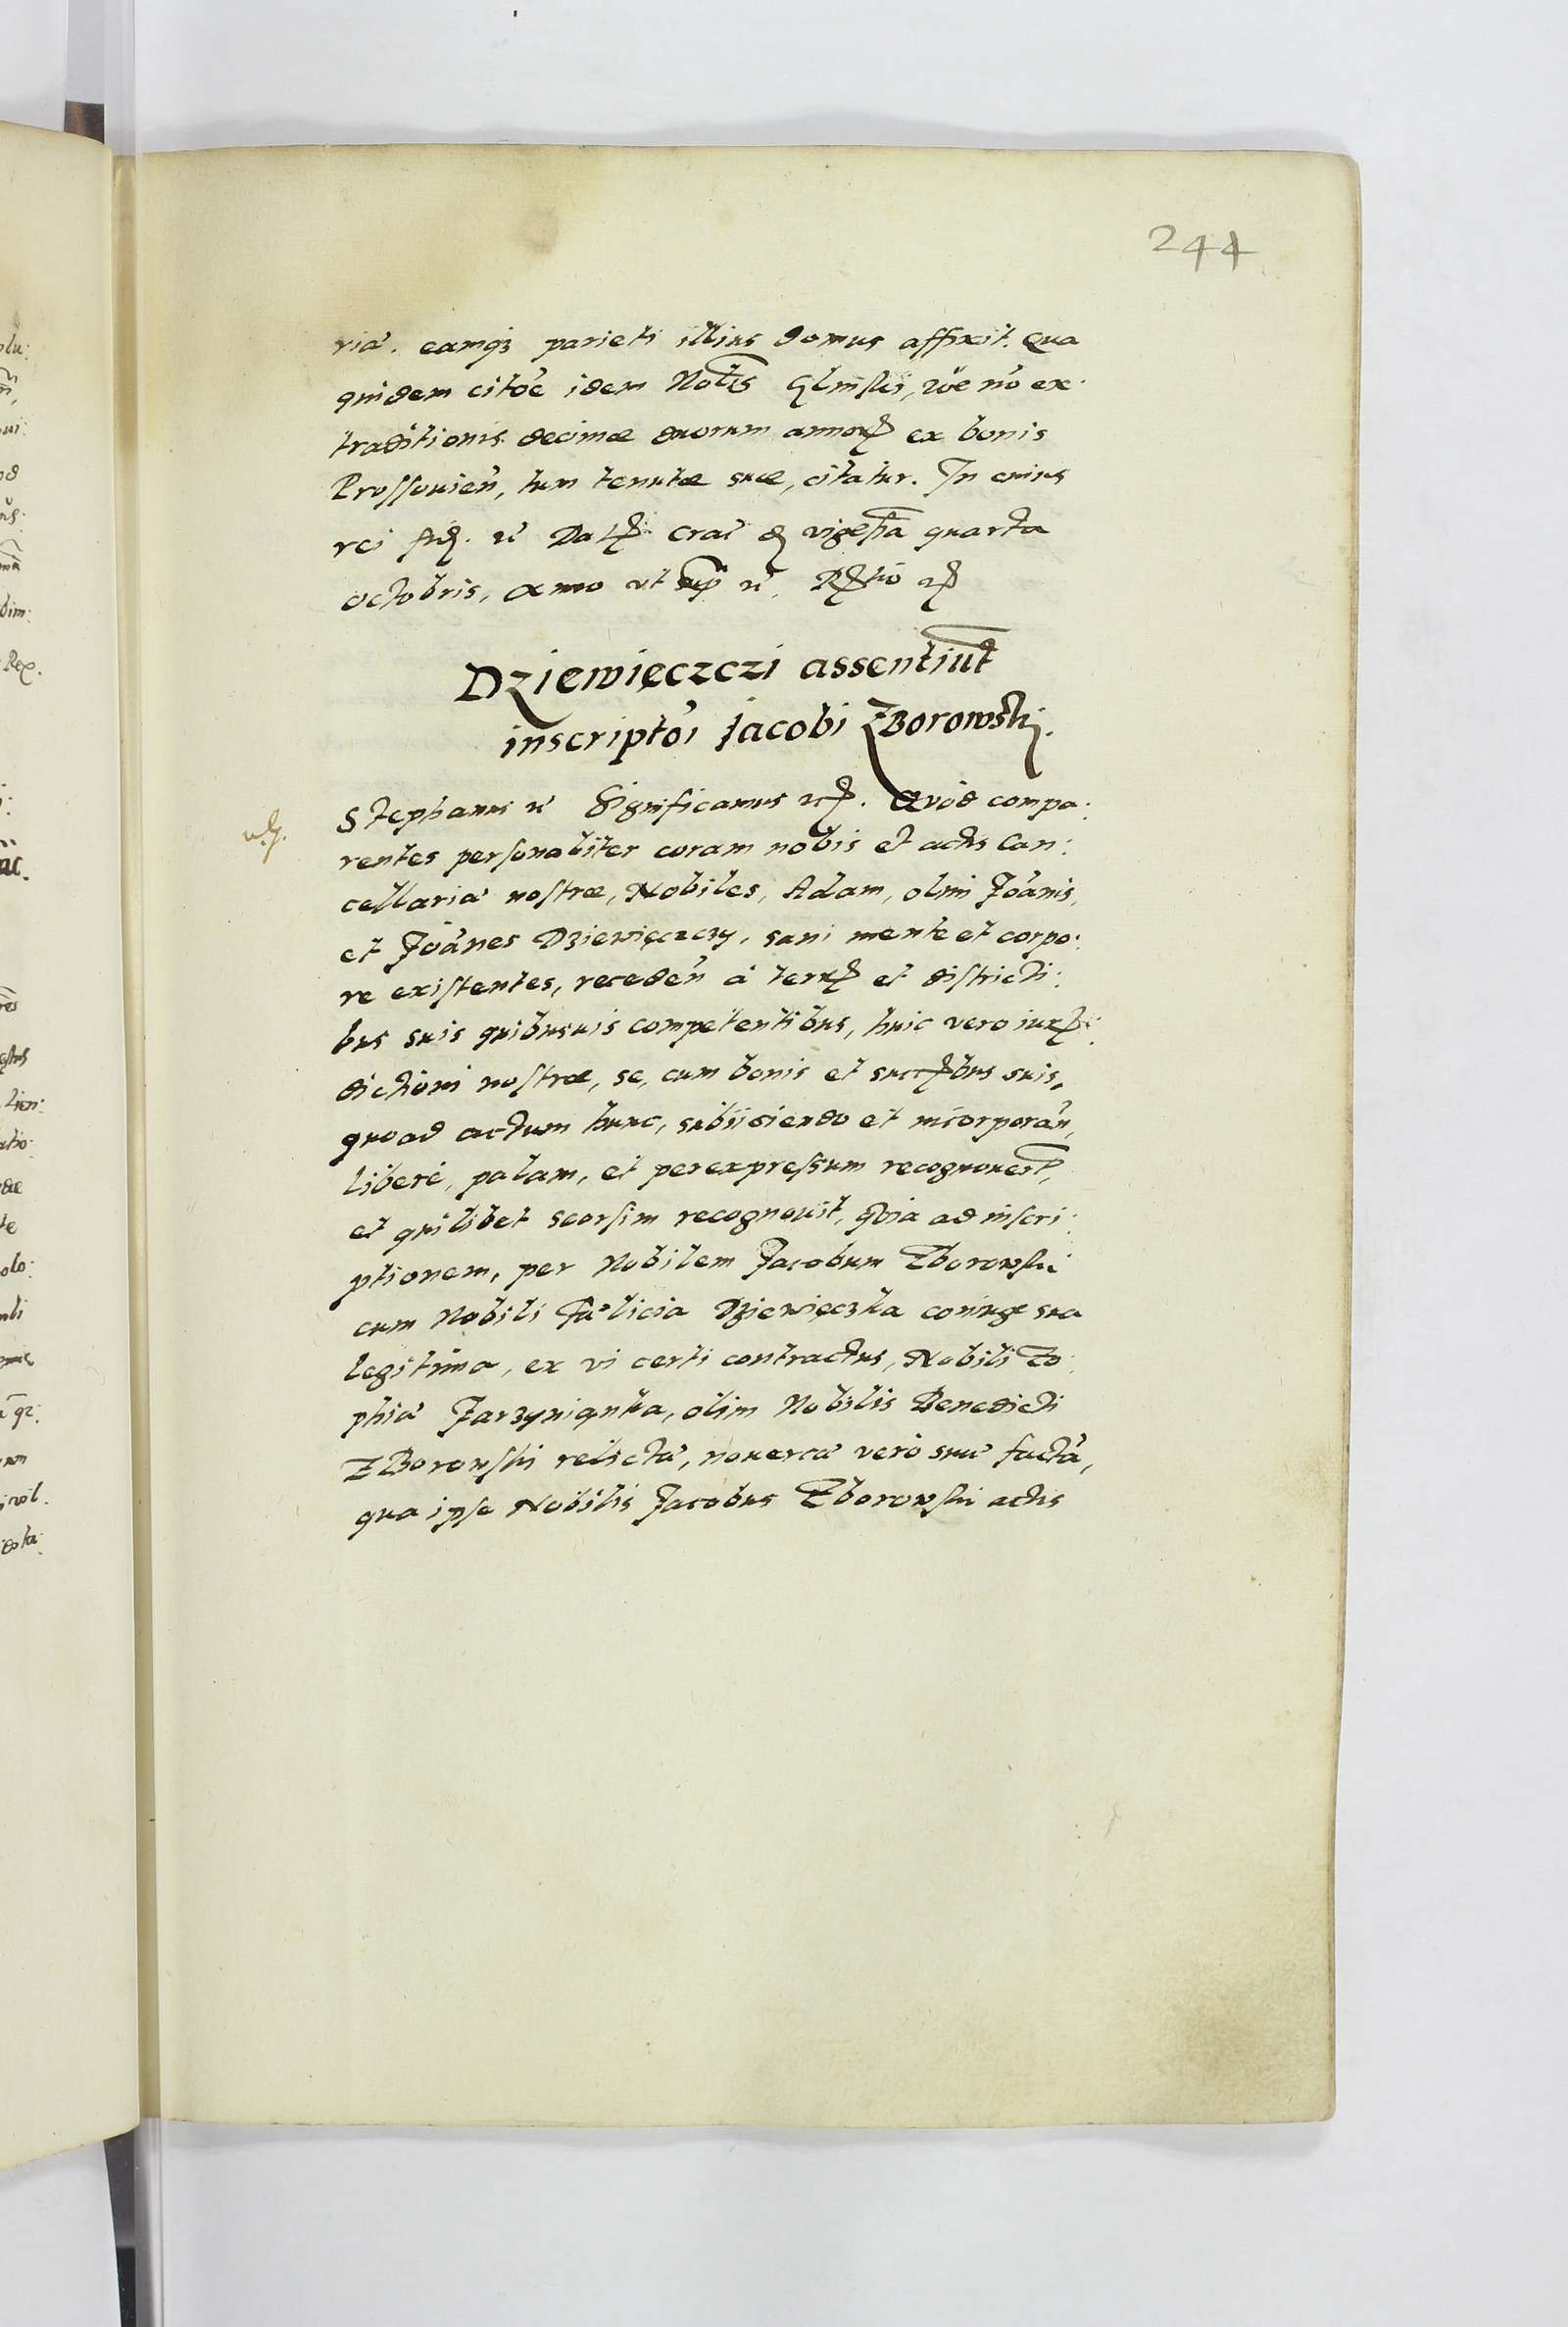 244
ria. eamq3 parieti illius domus affixit. Qua
quidem citoe idem Nobis Glinski, roe no ex:
traditionis decimæ duorum annor ex bonis
Prossouien, tum tenutæ suæ, citatur. In cuius
rei Dat Crac vigesima quarta
octobris, anno ut sup
Dziewięczczi assentiut
inscriptoi Jacobi Zborowskj.
Stephanus Significamus Quod compa:
rentes personaliter coram nobis et actis Can:
cellaria nostræ, Nobiles, Adam, olim Joanis,
et Joanes Dziewięczczy, sani mente et corpo:
re existentes, receden à terr et districti:
bus suis quibusuis competentibus, huic vero iur:
dictioni nostræ, se, cum bonis et succbus suis,
quoad actum hunc, subijciendo et incorporan,
liberè, palam, et per expressum recognouert,
et quilibet seorsim recognouit, Quia ad inscri:
ptionem, per Nobilem Jacobum Zborowski
cum Nobili Fælicia Dziewięczka coniuge sua
legitima, ex vi certi contractus, Nobili Zo:
phia Jarzyniąnka, olim Nobilis Benedicti
Zborowski relicta, nouerca verò sua facta,
qua ipse Nobilis Jacobus Zborowski actis